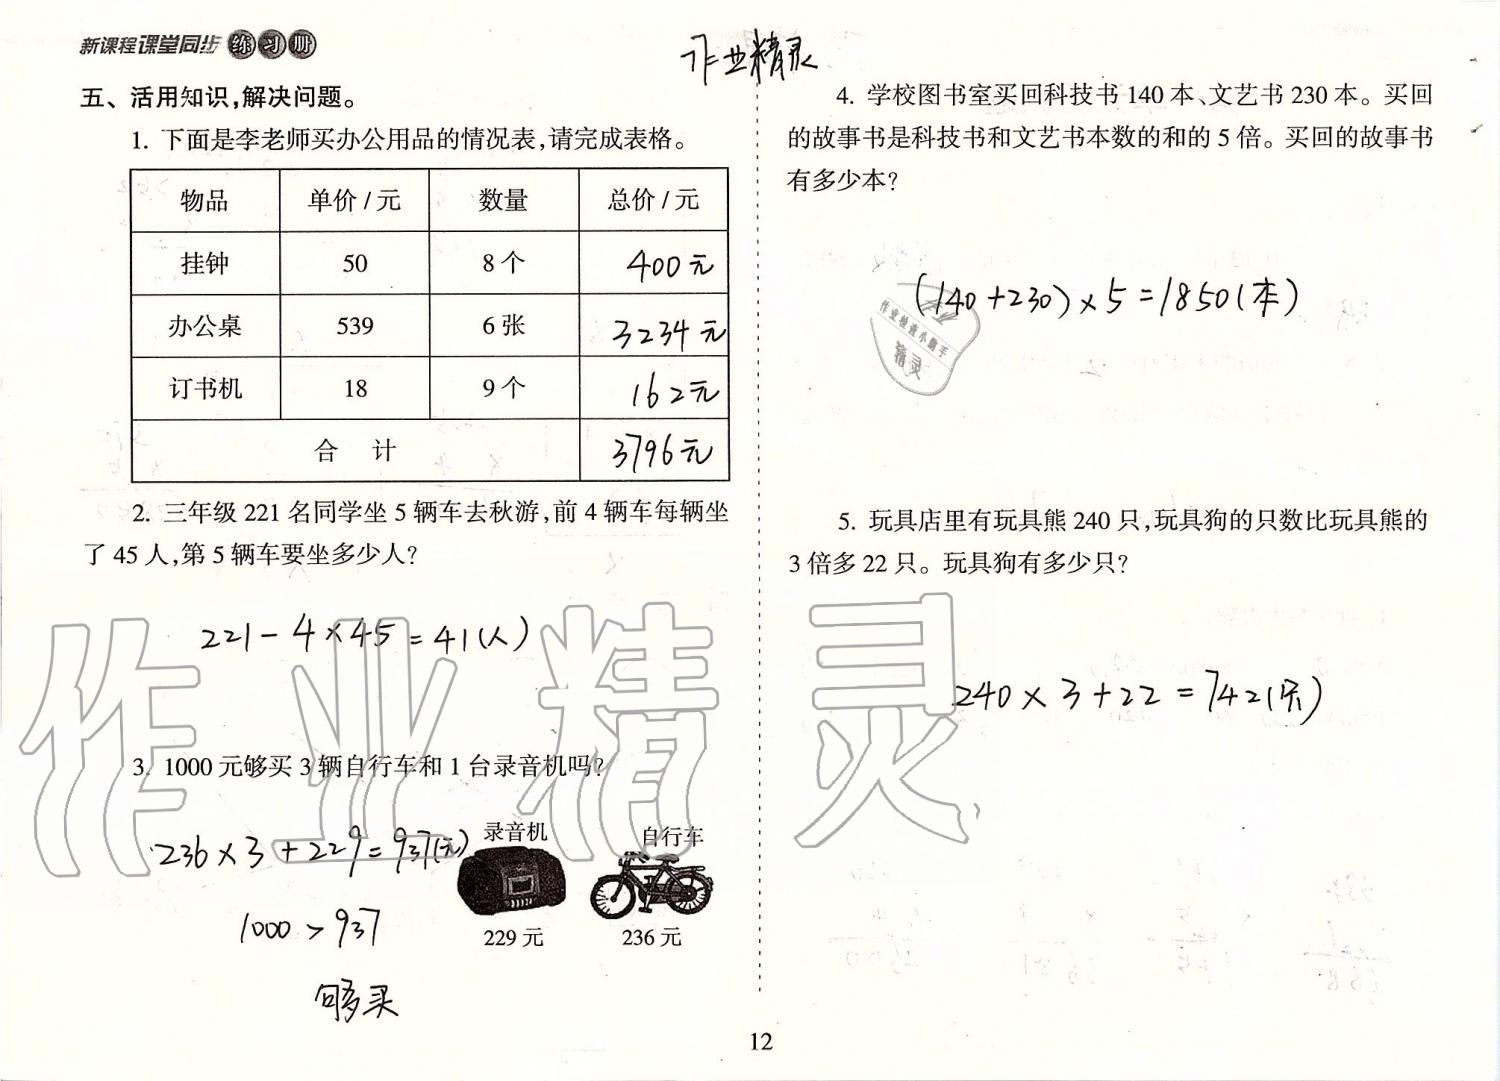 新课程课堂同步练习册
作业精灵
五、活用知识,解决问题。
1. 下面是李老师买办公用品的情况表,请完成表格。
物品 单价/元 数量 总价/元
挂钟 50 8个 400元
办公桌 539 6张 3234元
订书机 18 9个 162元
合 计 3796元
2. 三年级 221 名同学坐 5 辆车去秋游,前 4 辆车每辆坐
了 45 人,第 5 辆车要坐多少人?
221-4×45=41(人)
3. 1000元够买 3 辆自行车和 1 台录音机吗?
236×3+229=937(元)
1000>937
够买
录音机
229 元
自行车
236 元
4. 学校图书室买回科技书 140 本、文艺书 230 本。买回
的故事书是科技书和文艺书本数的和的 5 倍。买回的故事书
有多少本?
(140+230)×5=1850(本)
作业检查小助手
精灵
5. 玩具店里有玩具熊 240 只,玩具狗的只数比玩具熊的
3 倍多 22 只。玩具狗有多少只?
240×3+22=742(只)
作业精灵
12